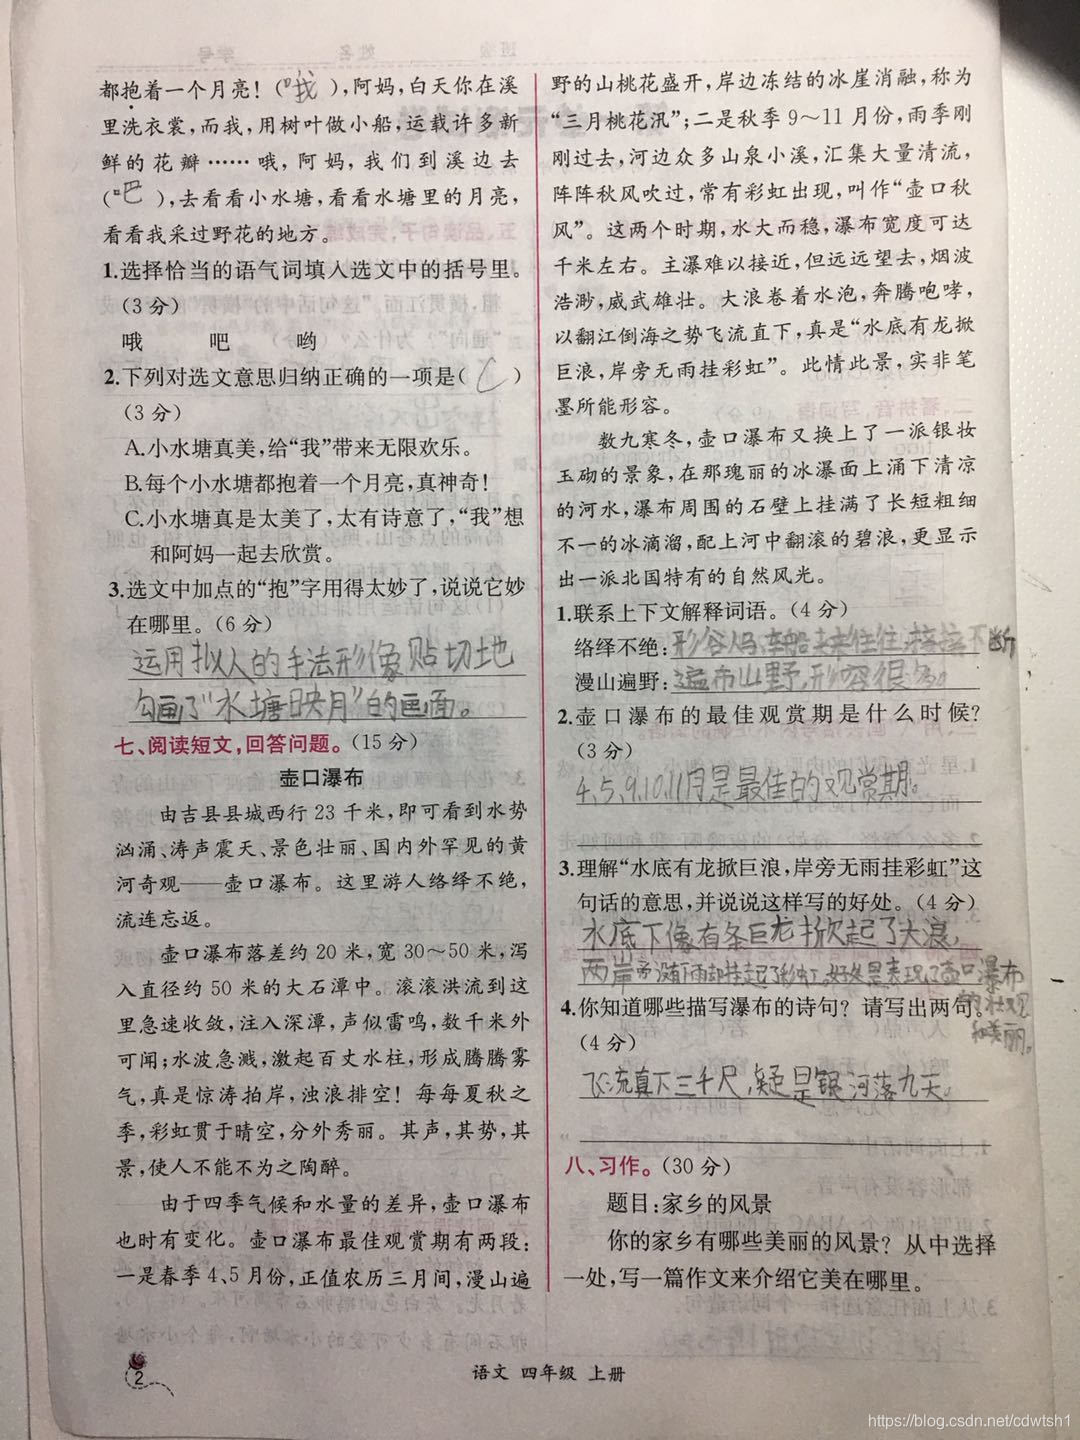 班级 姓名 学号
都抱着一个月亮!(哦),阿妈,白天你在溪
里洗衣裳,而我,用树叶做小船,运载许多新
鲜的花瓣……哦,阿妈,我们到溪边去
(吧),去看看小水塘,看看水塘里的月亮,
看看我采过野花的地方。
1.选择恰当的语气词填入选文中的括号里。
(3分)
哦 吧 哟
2.下列对选文意思归纳正确的一项是(C)
(3分)
A.小水塘真美,给“我”带来无限欢乐。
B.每个小水塘都抱着一个月亮,真神奇!
C.小水塘真是太美了,太有诗意了,“我”想
和阿妈一起去欣赏。
3.选文中加点的“抱”字用得太妙了,说说它妙
在哪里。(6分)
运用拟人的手法形像贴切地
勾画了“水塘映月”的画面。
七、阅读短文,回答问题。(15分)
壶口瀑布
由吉县县城西行23千米,即可看到水势
汹涌、涛声震天、景色壮丽、国内外罕见的黄
河奇观——壶口瀑布。这里游人络绎不绝,
流连忘返。
壶口瀑布落差约20米,宽30~50米,泻
入直径约50米的大石潭中。滚滚洪流到这
里急速收敛,注入深潭,声似雷鸣,数千米外
可闻;水波急溅,激起百丈水柱,形成腾腾雾
气,真是惊涛拍岸,浊浪排空!每每夏秋之
季,彩虹贯于晴空,分外秀丽。其声,其势,其
景,使人不能不为之陶醉。
由于四季气候和水量的差异,壶口瀑布
也时有变化。壶口瀑布最佳观赏期有两段:
一是春季4、5月份,正值农历三月间,漫山遍
野的山桃花盛开,岸边冻结的冰崖消融,称为
“三月桃花汛”;二是秋季9~11月份,雨季刚
刚过去,河边众多山泉小溪,汇集大量清流,
阵阵秋风吹过,常有彩虹出现,叫作“壶口秋
风”。这两个时期,水大而稳,瀑布宽度可达
千米左右。主瀑难以接近,但远远望去,烟波
浩渺,威武雄壮。大浪卷着水泡,奔腾咆哮,
以翻江倒海之势飞流直下,真是“水底有龙掀
巨浪,岸旁无雨挂彩虹”。此情此景,实非笔
墨所能形容。
数九寒冬,壶口瀑布又换上了一派银妆
玉砌的景象,在那瑰丽的冰瀑面上涌下清凉
的河水,瀑布周围的石壁上挂满了长短粗细
不一的冰滴溜,配上河中翻滚的碧浪,更显示
出一派北国特有的自然风光。
1.联系上下文解释词语。(4分)
络绎不绝:形容人马、车船来来往往,接接不断
漫山遍野:遍布山野,形容很多。
2.壶口瀑布的最佳观赏期是什么时候?
(3分)
4、5、9、10、11月是最佳的观赏期。
3.理解“水底有龙掀巨浪,岸旁无雨挂彩虹”这
句话的意思,并说说这样写的好处。(4分)
水底下像有条巨龙掀起了大浪,
两岸旁没有下雨却挂起了彩虹。好处是表现了壶口瀑布
的壮观
和美丽。
4.你知道哪些描写瀑布的诗句?请写出两句。
(4分)
飞流直下三千尺,疑是银河落九天。
八、习作。(30分)
题目:家乡的风景
你的家乡有哪些美丽的风景?从中选择
一处,写一篇作文来介绍它美在哪里。
2
语文 四年级 上册
https://blog.csdn.net/cdwtsh1